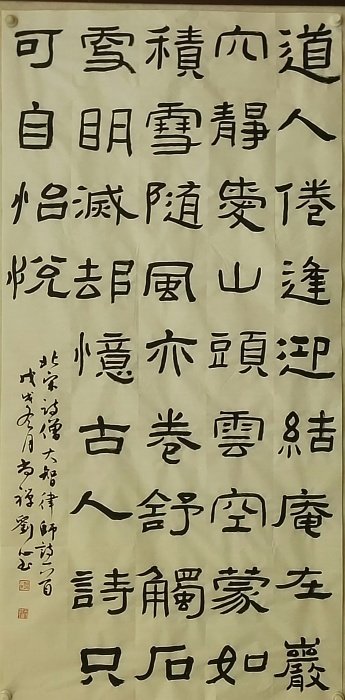 道人倦逢迎結庵在巖
穴靜愛山頭雲空蒙如
積雪隨風亦卷舒觸石
明滅却憶古人詩只
可自怡悅
北宋詩僧大智律師詩一首
戊戌冬月尚禪劉書